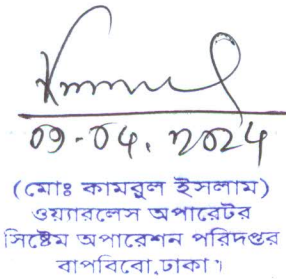 09-04.2024
(মোঃ কামরুল ইসলাম)
ওয়্যারলেস অপারেটর
সিষ্টেম অপারেশন পরিদপ্তর
বাপবিবো,ঢাকা।